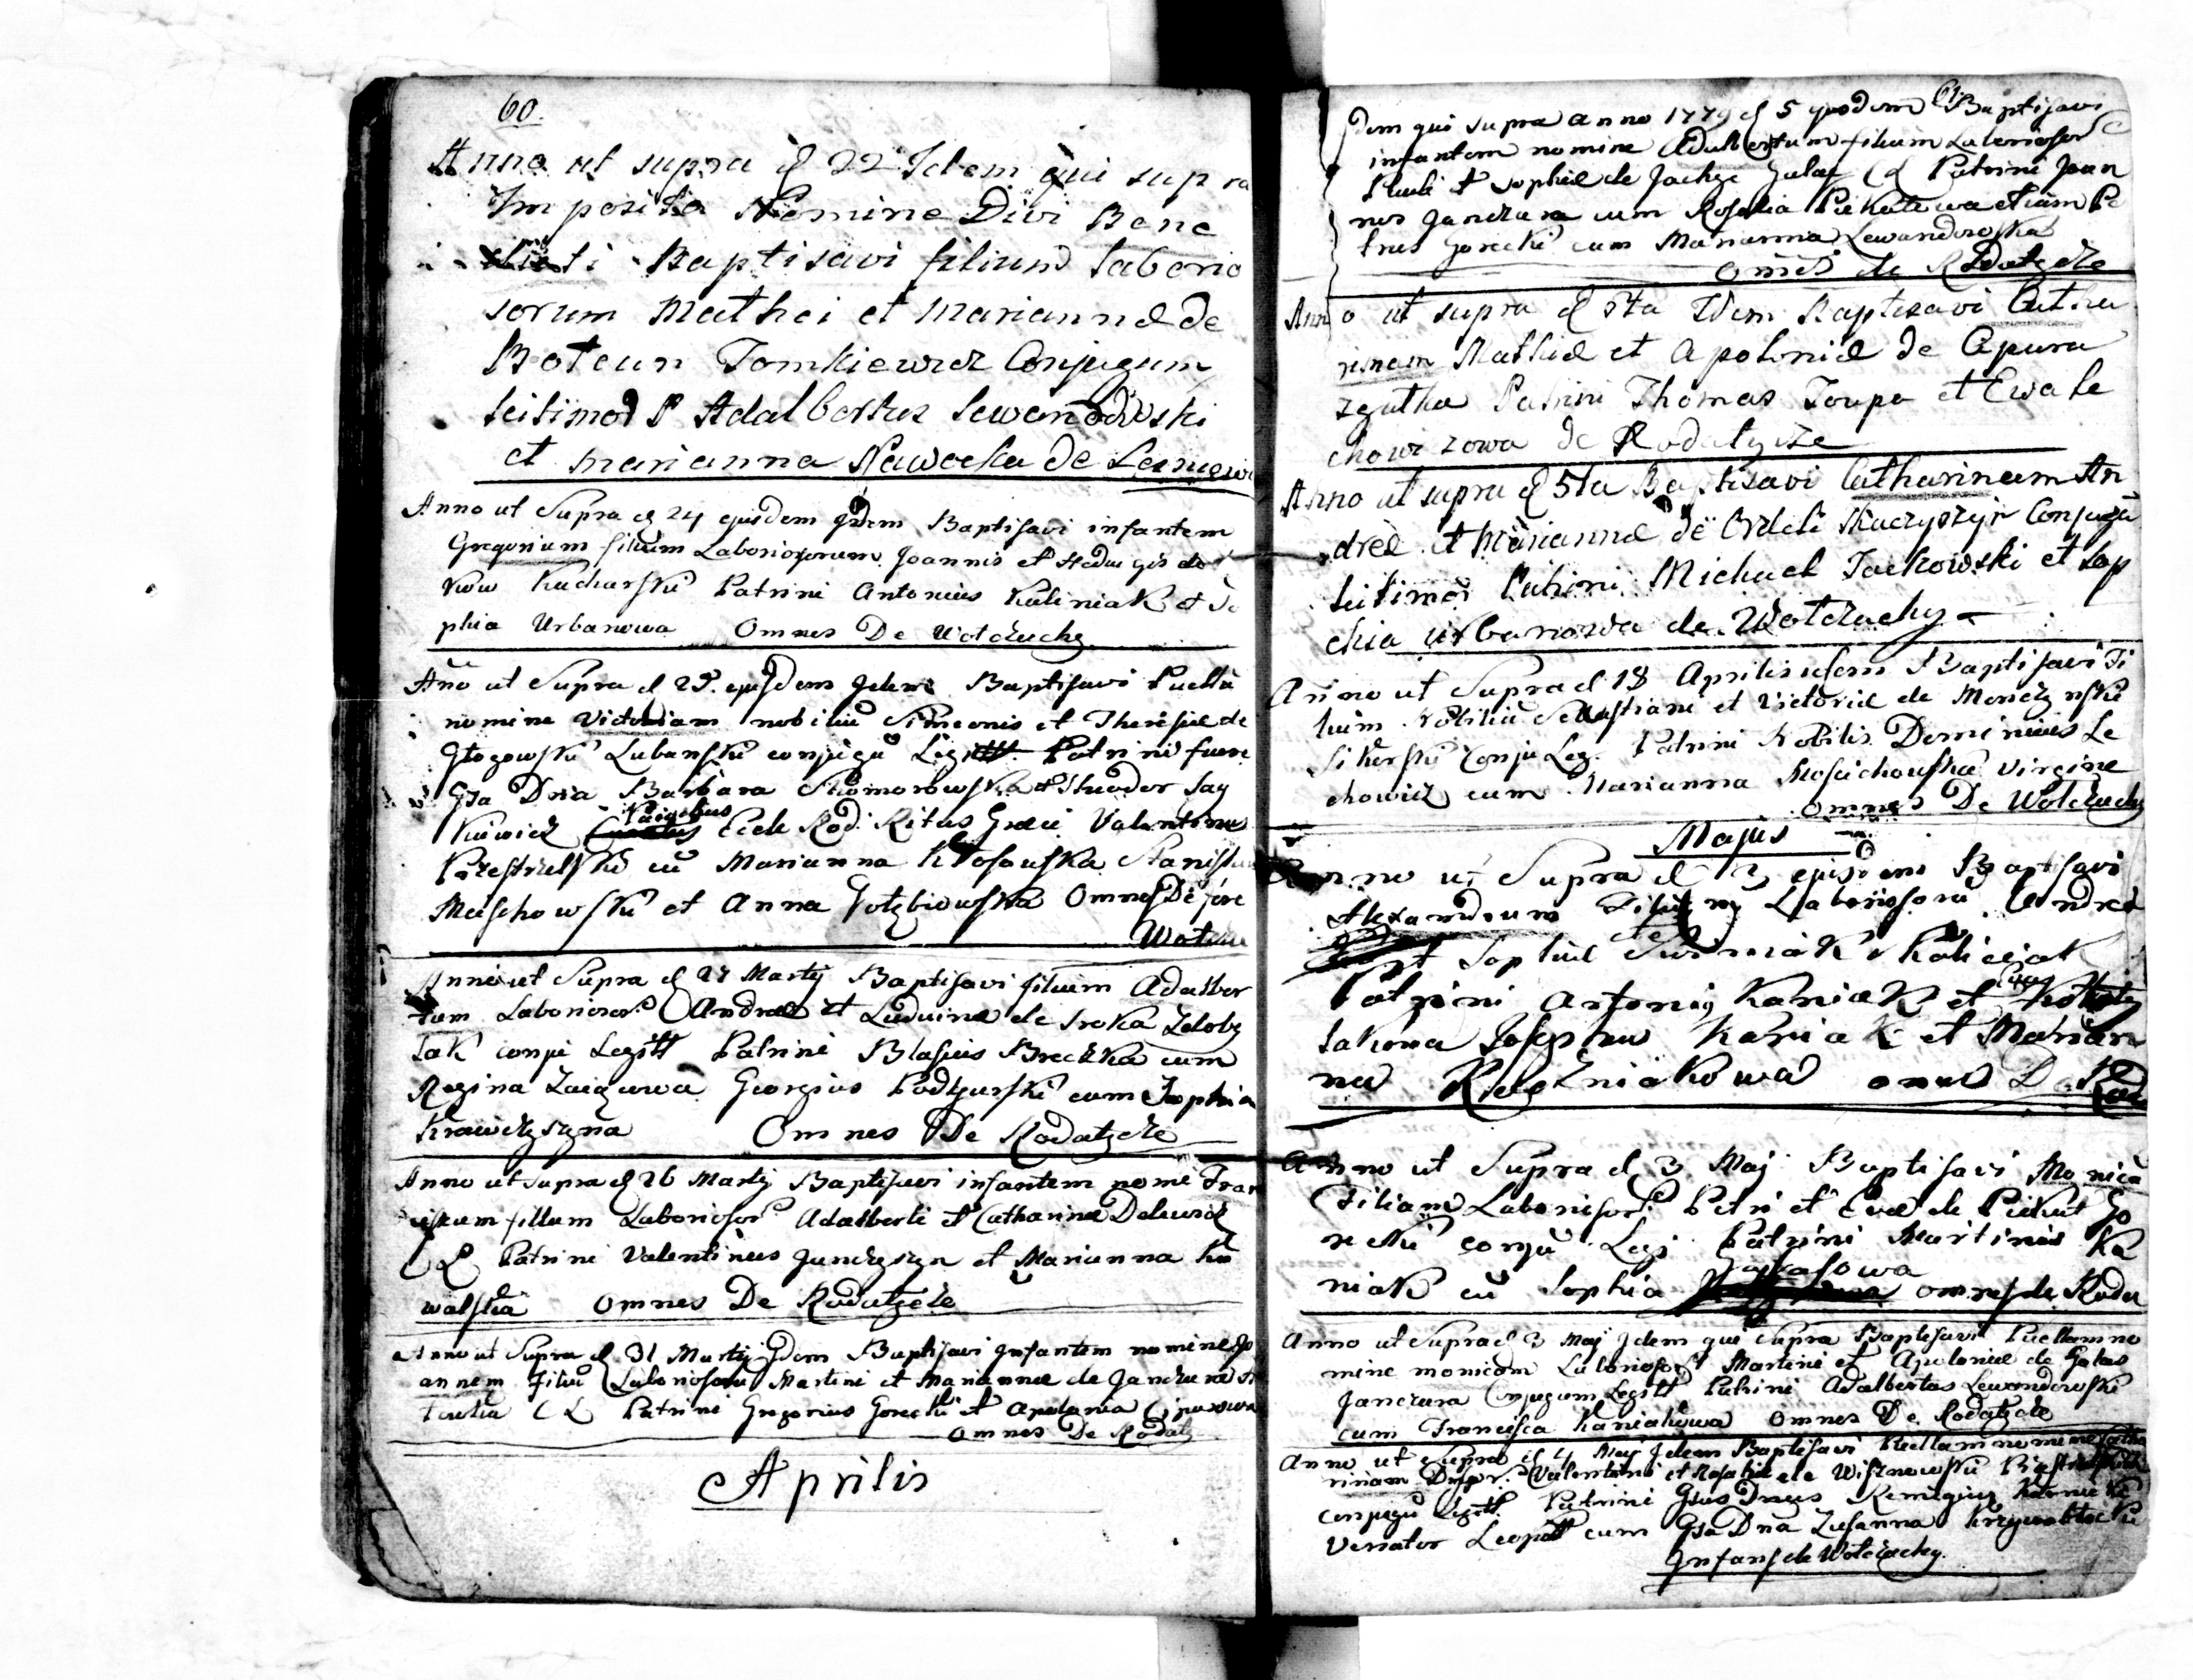 60.
Anno ut supra d 22 Idem qui supra
Imposito Nomine Divi Bene
dicti Baptisavi filium Laborio
sorum Mathei et Mariannæ de
Boteun Tomkiewicz Conjugum
Leitimor P Adalbertus Lewandowski
et Marianna Nawocka de
Anno ut Supra d 24 ejusdem Idem Baptisavi infantem
Gregorium filium Laboriosorum Joannis et Hedvigis de
Kucharski Patrini Antonius Kaliniak et So
phia Urbanowa Omnes De Wołczuchy
Ano ut Supra d 25. ejusdem Idem Baptisavi Puellā
nomine Victoriam nobiliū Simeonis et Theresiæ de
Głogowski Lubanski conjugū Legitt Patrini fuere
Gsa Dna Barbara Skomorowska et Theodor Say
kiewicz Eccle Rod Ritus Græci Valentinus
Przestrzelski cū Marianna Kłosowska Stanislaus
Maschowski et Anna Gołębiowska Omnes De
Wołczu
Anno ut Supra d 27 Martij Baptisavi filium Adalber
tum Laborioso Andreæ et Ludvinæ de Sroka
Tak conju Legitt Patrini Blasius Breczka cum
Regina Georgius Podgurski cum Sophia
Krawczyszyna Omnes De Rodatycze
Anno ut supra d 26 Martij Baptisavi infantem nomē Fran
ciscum filium Laborioso Adalberti et Catharinæ
C L Patrini Valentinus Janczyszyn et Marianna Ko
walska Omnes De Rodatycze
Anno ut Supra d 31 Martij Idem Baptisavi Infantem nomine Jo
annem filiū Laboriosorū Martini et Mariannæ de Janczura
C L Patrini Gregorius Gorecki et Apolonia
Omnes De Rodaty
Aprilis
61.
Idem qui supra anno 1779 d 5 ejusdem Baptisavi
infantem nomine Adalbertum filium Laboriosor
Pauli et Sophiæ de Jackze Gulay C L Patrini Joan
nes Janczura cum Rosalia Piekutowa etiam Pe
trus Gorecki cum Marianna Lewandowska
Omēs de Rodatycze
Anno ut supra d 5ta Idem Baptisavi Catha
rinam Mathiæ et Apoloniæ de Apura
Patrini Thomas Toupa et Ewa Le
chowiczowa de Rodatycze
Anno ut supra d 5ta Baptisavi Catharinam An
dreæ et Mariannæ de Skaczyszyn Conjugū
Leitimor Patrini Michael Jackowski et Sop
hia Urbanowa de Wołczuchy
Anno ut Supra d 18 Aprilis idem Baptisavi Fi
lium Nobiliū Sebastiani et Victoriæ de
Sikorski Conju Leg. Patrini Nobilis Dominicus Le
chowicz cum Marianna Virgine
Omnes De Wołczuchy
Majus
Anno ut Supra d 3 ejusdem Baptisavi
Alexandrum Filium Laboriosorū Andreæ
et Sophiæ
Patrini Antonij Kaniak et Eva
Josephus Kaniak et Marian
na omnes De Rod
Anno ut Supra d 3 Maj Baptisavi Monicā
Filiam Laborisor Petri et Evæ de Piekut Go
recki conju Legi Patrini Martinus Ka
niak cū Sophia omnes de Roda
Anno ut Supra d 3 Maj Idem qui Supra Baptisavi Puellam no
mine monicam Laboriosor Martini et Apoloniæ de Galas
Janczura Conjugum Legitt Patrini Adalbertus Lewandowski
cum Francisca Kaniakowa Omnes De Rodatycze
Anno ut Supra d 4 Maj Idem Baptisavi Puellam nomine Catha
rinam Valentini et Rosaliæ de Wisznewski
conjugū Legitt Patrini Gsus Dnus Remigius
Venator Leopol cum Gsa Dna Zusanna
Infans de Wołczuchy.